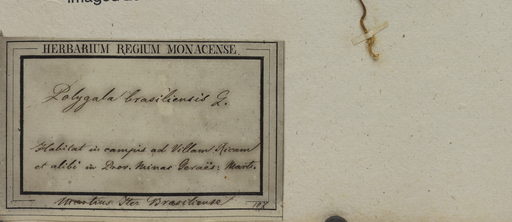 HERBARIUM REGIUM MONACENSE.
Polygala brasiliensis L.
Habitat in campis ad Villam Ricam
et alibi in Prov. Minas Geraës: Mart.
Martius Iter Brasiliense